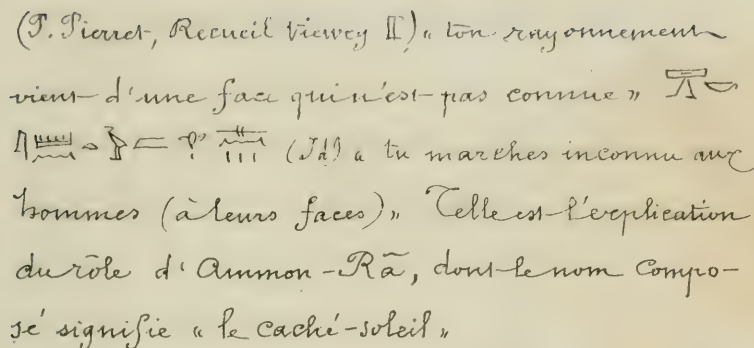 (P. Pierret, Recueil Vieweg II) « ton rayonnement
vient d'une face qui n'est pas connue »
(Id) « tu marches inconnu aux
hommes (à leurs faces) » Telle est l'explication
du rôle d'Ammon-Rā, dont le nom compo-
sé signifie « le caché-soleil »